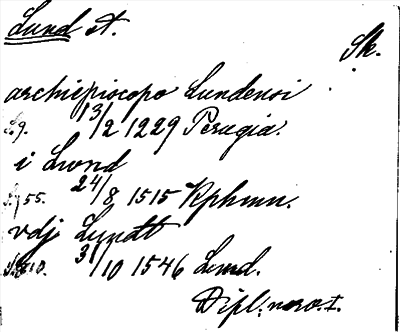 Lund st.
Sk.
archiepiscopo Lundensi
S. 9. 13/2 1229 Perugia.
i Lwnd
S. 55. 24/8 1515 Kphmn.
vdj Lundt
31/10 1546 Lund.
Dipl. nova. I.